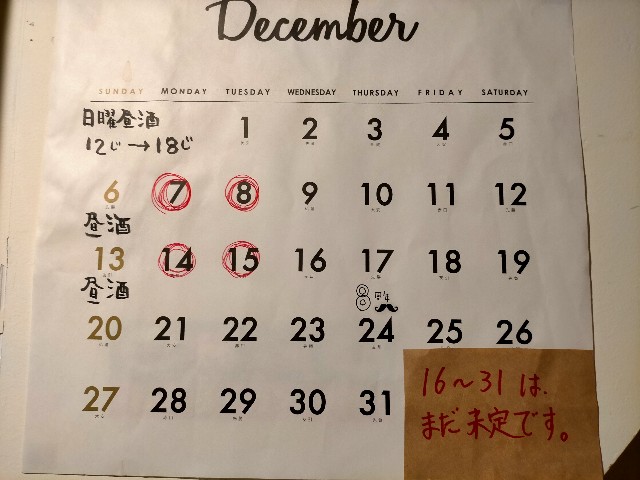 December
SUNDAY MONDAY TUESDAY WEDNESDAY THURSDAY FRIDAY SATURDAY
日曜昼酒
12じ→18じ
1 2 3 4 5
6 7 8 9 10 11 12
昼酒
13 14 15 16 17 18 19
昼酒
8周年
20 21 22 23 24 25 26
27 28 29 30 31
16～31は、
まだ未定です。